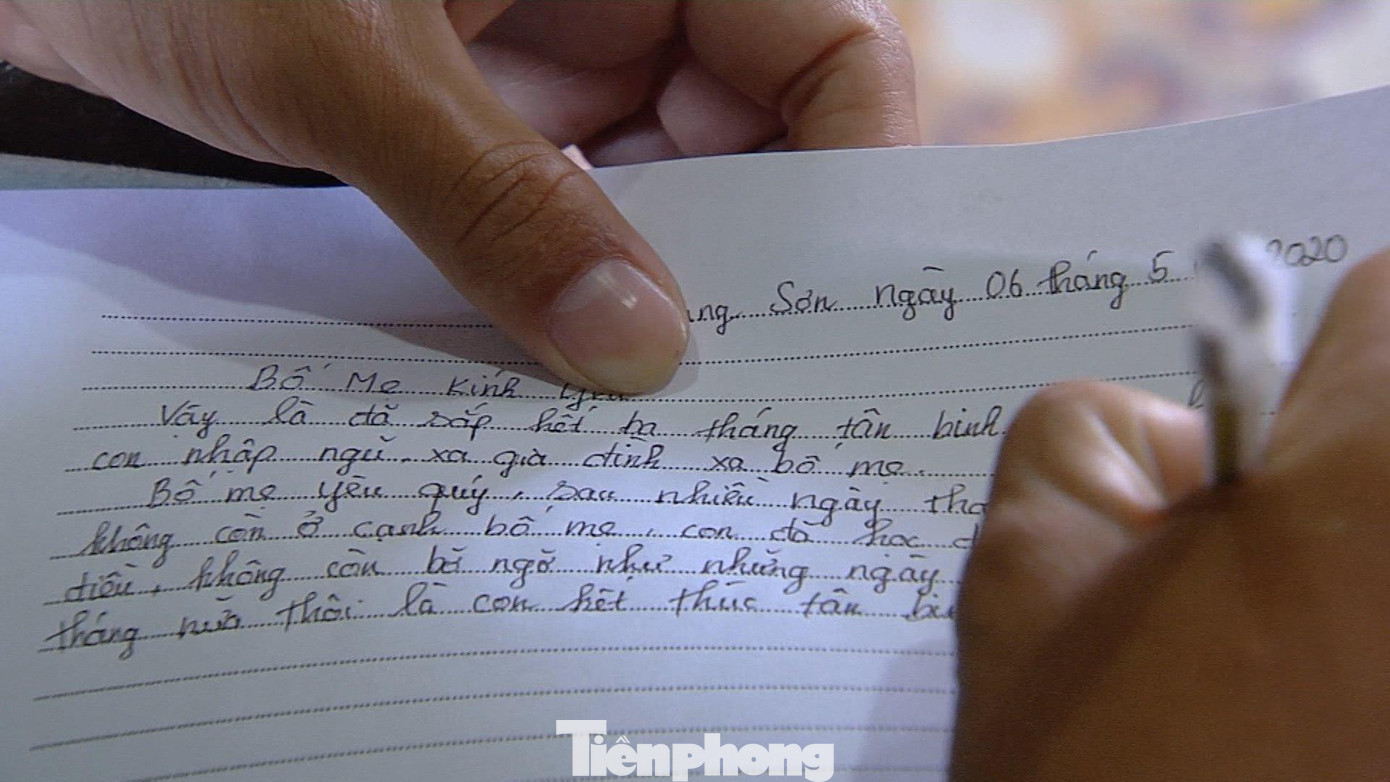 Sơn ngày 06 tháng 5 2020
Bố Mẹ kính yêu
Vậy là đã sắp hết ba tháng tân binh
con nhập ngũ, xa gia đình xa bố mẹ.
Bố mẹ yêu quý, sau nhiều ngày
không còn ở cạnh bố mẹ, con đã học
điều, không còn bỡ ngỡ như những ngày
tháng nữa thôi là con kết thúc tân
Tiềnphong